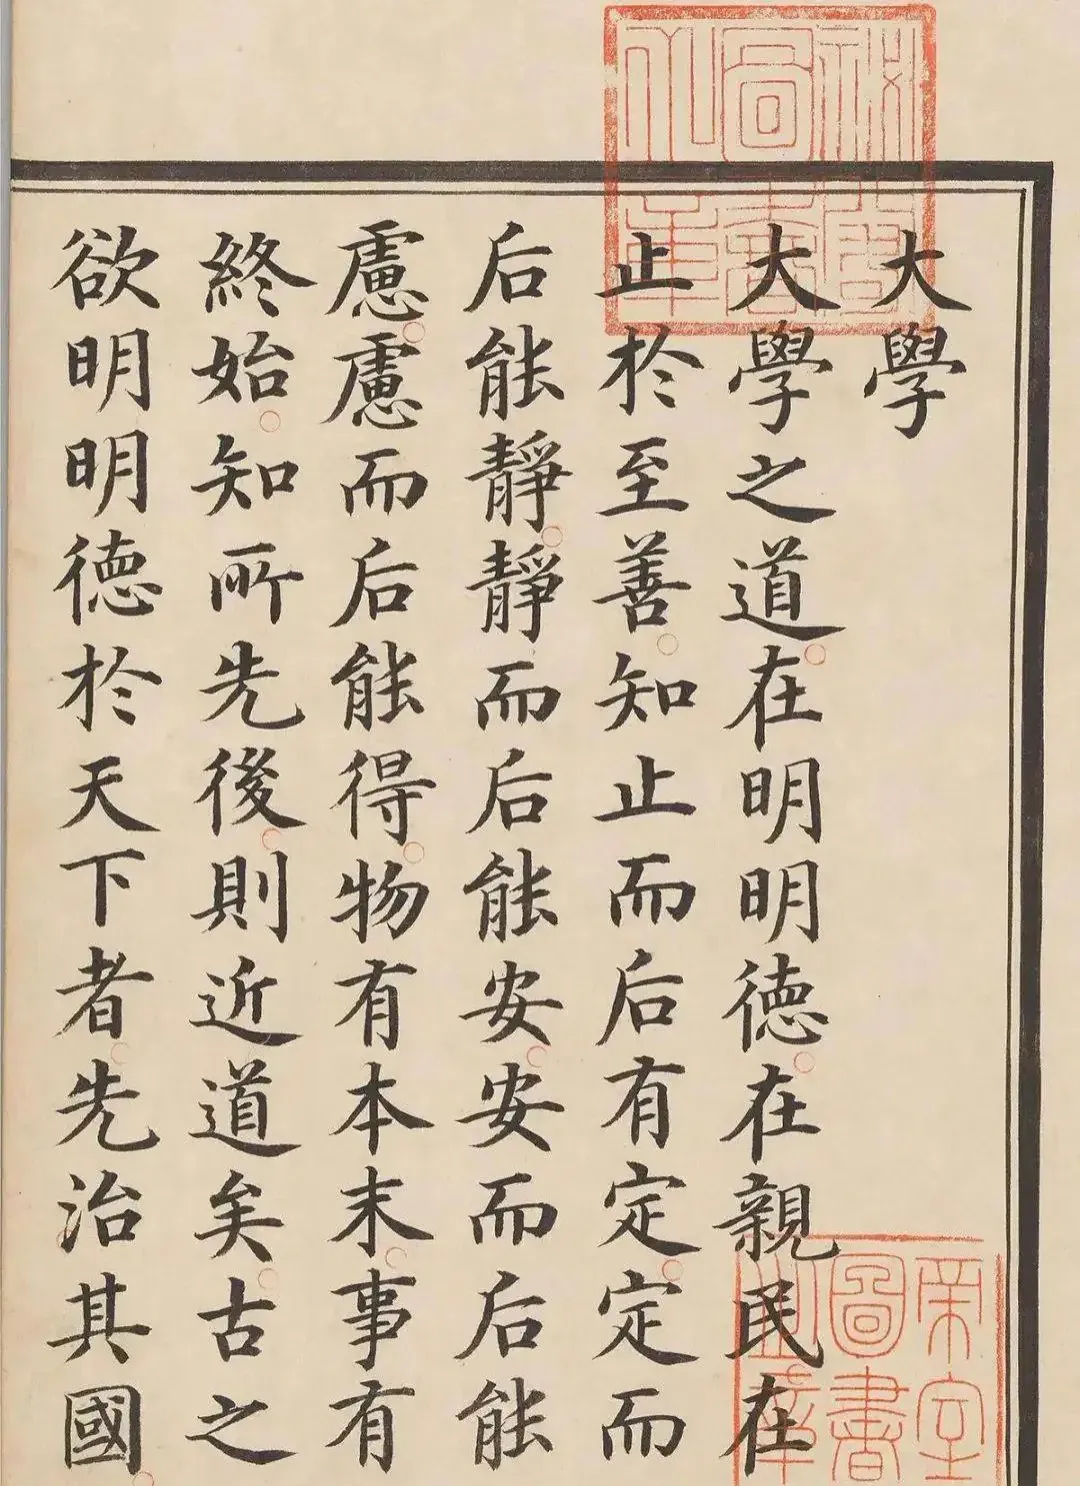 大學
大學之道在明明德在親民在
止於至善知止而后有定定而
后能靜靜而后能安安而后能
慮慮而后能得物有本末事有
終始知所先後則近道矣古之
欲明明德於天下者先治其國
帝室
圖書
之章